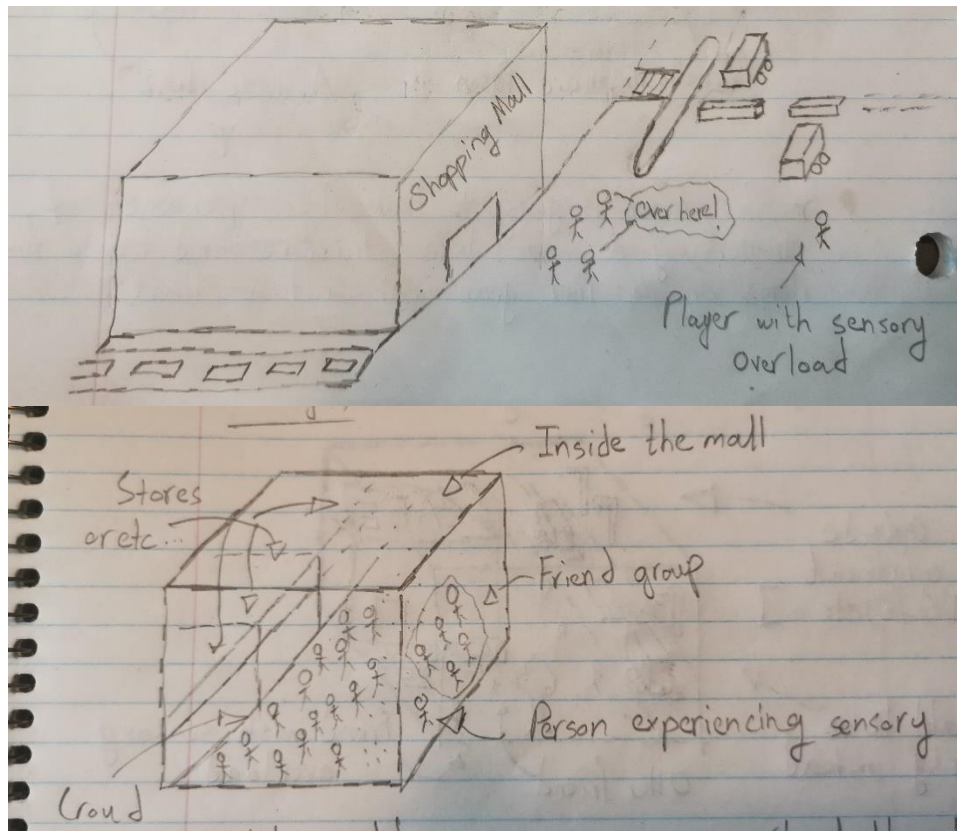 Shopping Mall
Over here!
Player with sensory
overload
Inside the mall
Stores
or etc...
Friend group
Person experiencing sensory
Croud